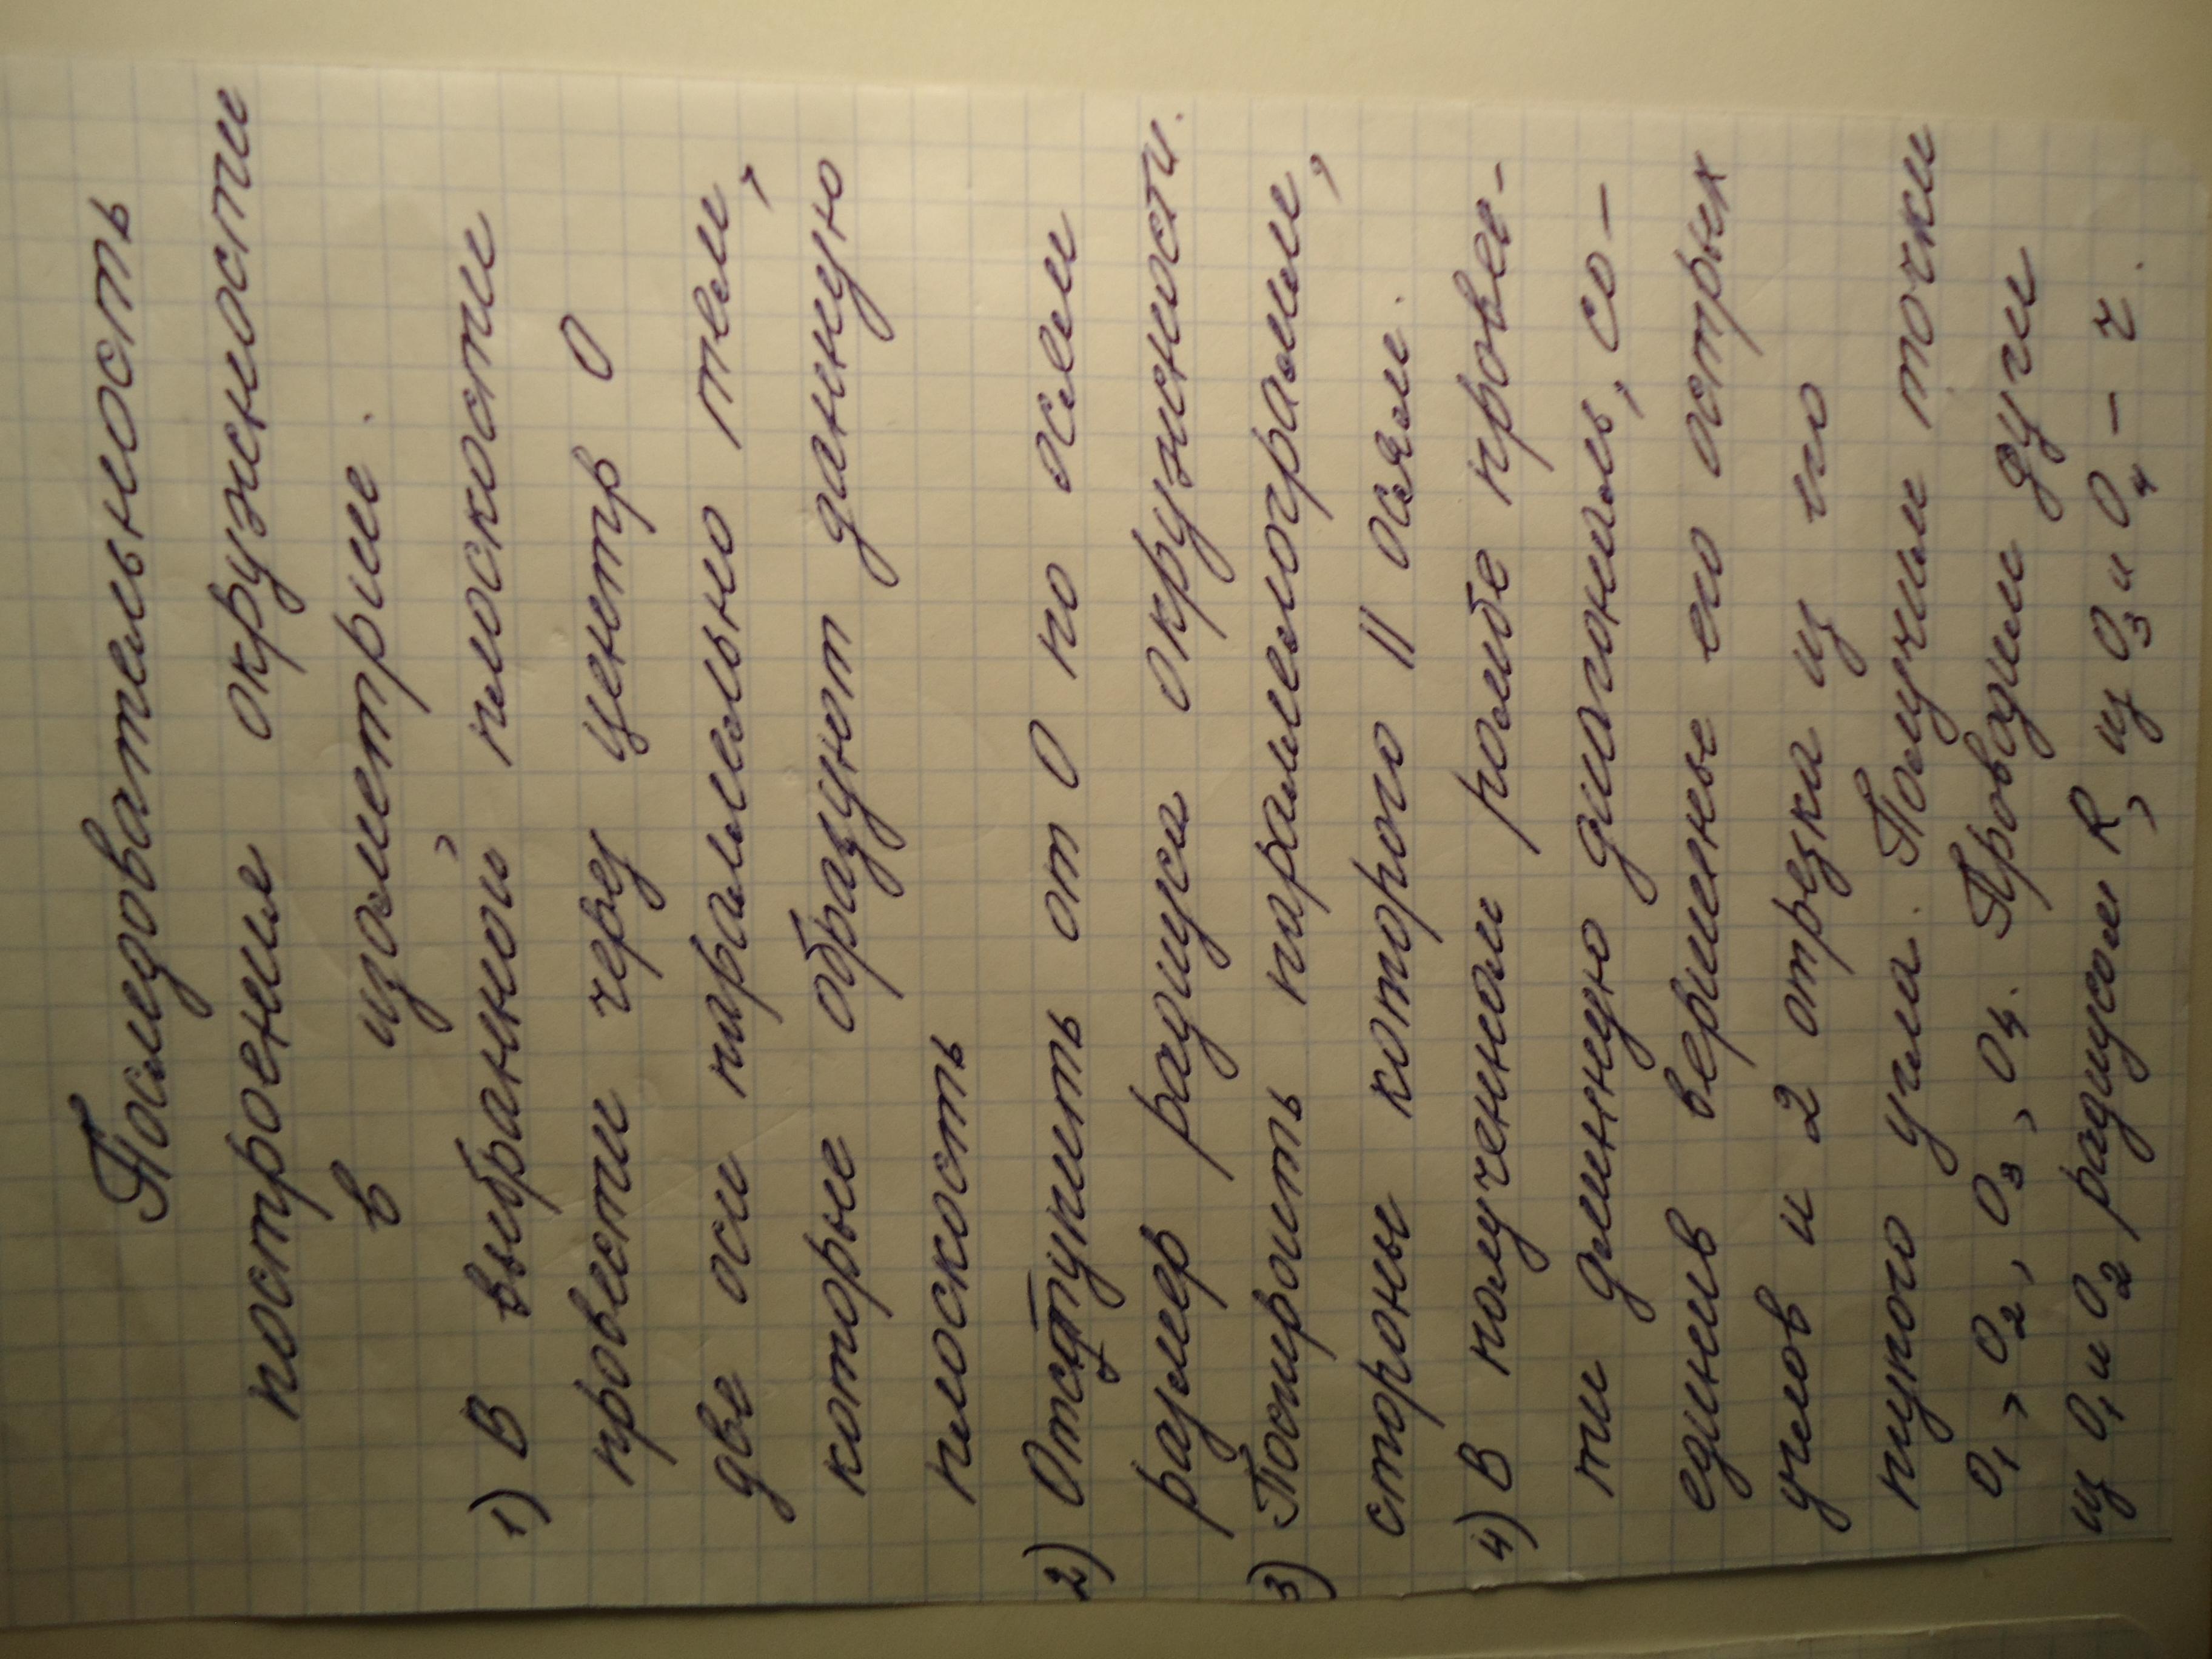 Последовательность
построение окружности
в изометрие.
1) В выбранной плоскости
провести через центр О
две оси параллельно тем,
которые образуют данную
плоскость
2) Отступить от О по осям
размер радиуса окружности.
3) Построить параллелограмм,
стороны которого || осям.
4) В полученном ромбе провес-
ти длинную диагональ, со-
единив вершины его острых
углов и 2 отрезка из его
тупого угла. Получим точки
О1, О2, О3, О4. Проводим дуги
из О1 и О2 радиусом R, из О3 и О4 - r.